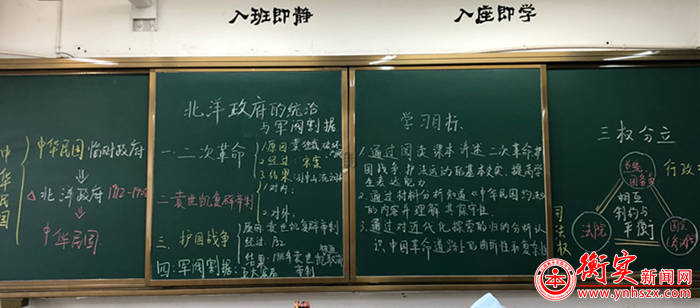 入班即静
入座即学
中华民国
中华民国临时政府
北洋政府 1912-19
中华民国
北洋政府的统治
与军阀割据
一.二次革命
1.原因
2.经过
3.结果:
1.对内:
二.袁世凯复辟帝制
2.对外:
三.护国战争
原因:袁世凯复辟帝制
经过:P2
结果:
四:军阀割据:
帝制
学习目标:
1.通过阅读课本讲述二次革命护
国战争护法运动的基本史实,提高学
生表达能力
2.通过材料分析知道《中华民国约法》
的内容并理解其
3.通过对近代化探索的归纳分析认
识中国革命道路上的曲折性和复杂性
三权分立
总统
国务员
行政
相互
制约与
平衡
司法权
法院
国会
衡实新闻网
www.ynhszx.com